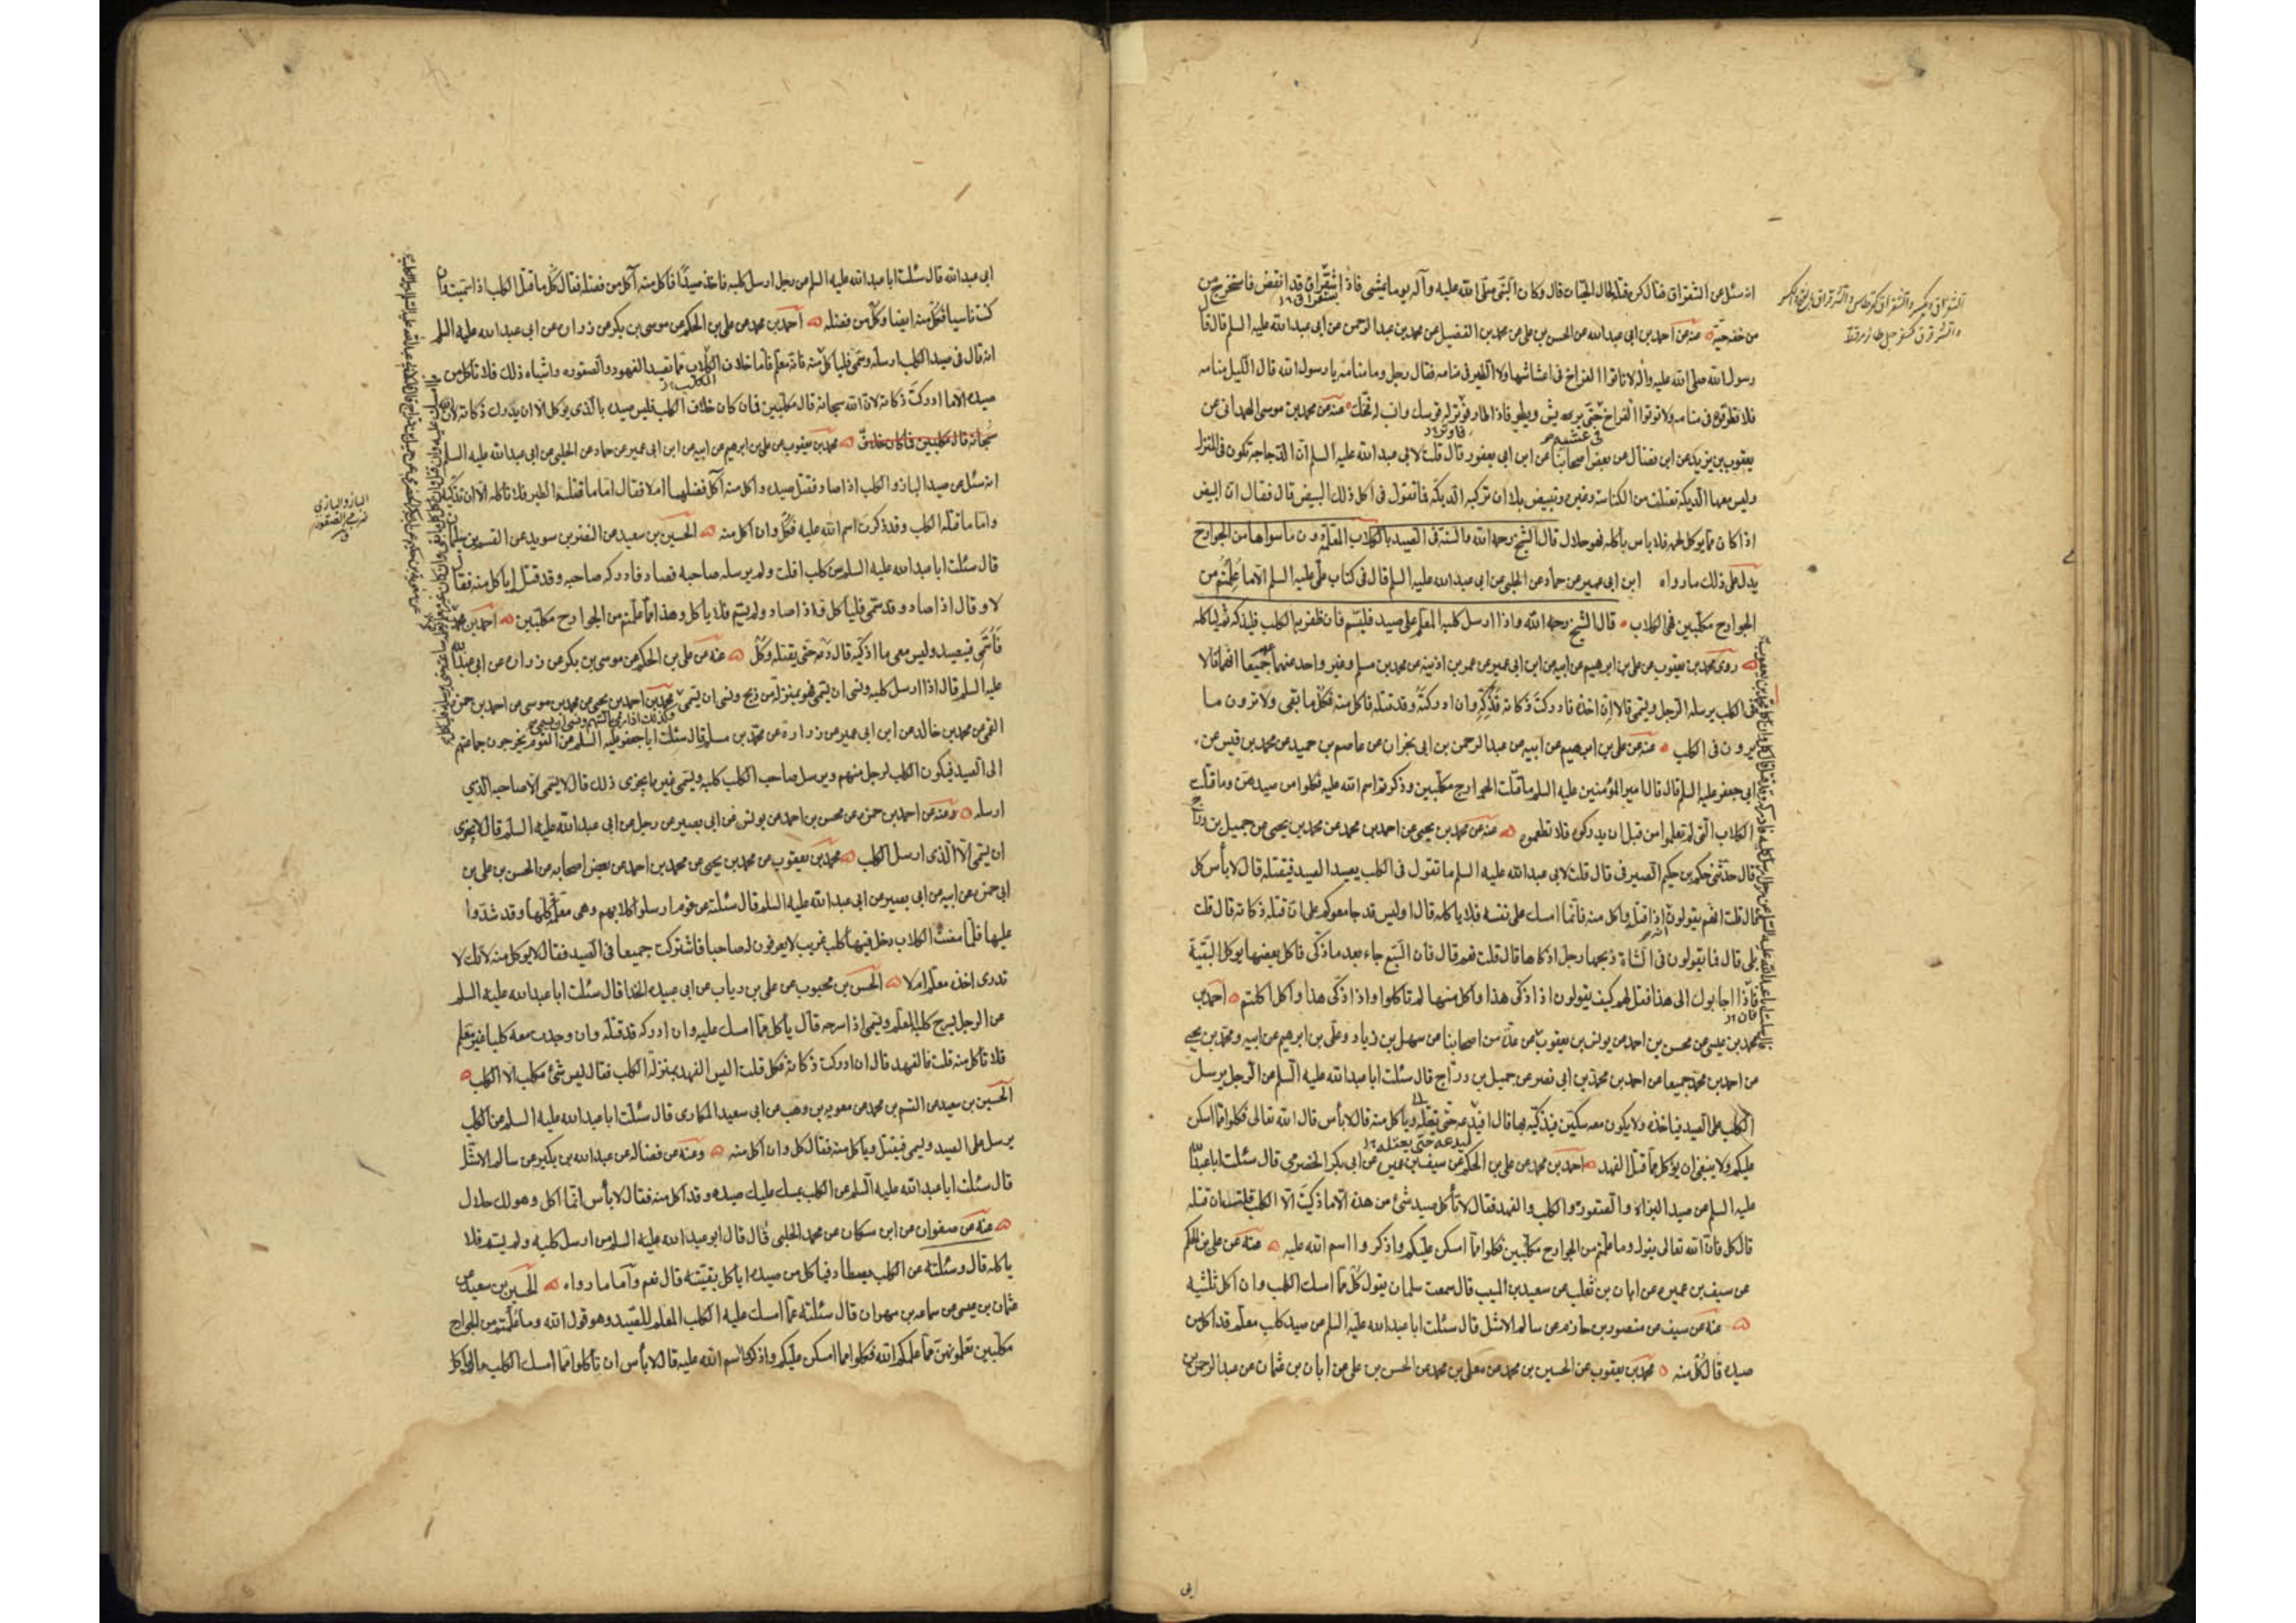 انه سئل عن الشقراق فقال كره قتله لحال الحيات قال وكان النبي صلى الله عليه وآله يوما يمشي فاذا شقراق قد انقض فاستخرج من
من خفه حية منه عن احمد بن ابي عبد الله عن الحسن بن علي عن محمد بن الفضيل عن محمد بن عبد الرحمن عن ابي عبد الله عليه السلم قال قا
رسول الله صلى الله عليه واله لا تاتوا الفراخ في اعشاشها ولا الطير في منامه فقال رجل وما منامه يا رسول الله قال الليل منامه
فلا تطرقوه في منامه ولا توتوا الفراخ حتى يريش ويطير فاذا طار فوتر له قوسك وانصب له فخك منه عن محمد بن موسى الهمداني عن
في عشه
يعقوب بن يزيد عن ابن فضال عن بعض اصحابنا عن ابن ابي يعفور قال قلت لابي عبد الله عليه السلم ان الدجاجة تكون في المنزل
وليس معها الديكة تعتلف من الكناسة وغيره وتبيض بلا ان تركبه الديكة فما تقول في اكل ذلك البيض قال فقال ان البيض
اذا كان مما يوكل لحمه فلا باس باكله فهو حلال قال الشيخ رحمه الله والسنة في الصيد بالكلاب المعلمة دون ما سواها من الجوارح
يدل على ذلك ما رواه ابن ابي عمير عن حماد عن الحلبي عن ابي عبد الله عليه السلم قال في كتاب علي عليه السلم الا ما علمتم من
الجوارح مكلبين فهي الكلاب قال الشيخ رحمه الله واذا ارسل كلبه المعلم على صيد فليسم فان ظفر به الكلب فليذكه ثم لياكله
روى محمد بن يعقوب عن علي بن ابراهيم عن ابيه عن ابن ابي عمير عن عمر بن اذينه عن محمد بن مسلم وغير واحد عنهما جميعا انهما قالا
في الكلب يرسله الرجل ويسمي قالا ان اخذه فادركت ذكاته فذكه وان ادركته وقد قتله فاكل منه فكل ما بقى ولا ترون ما
يرون في الكلب منه عن علي بن ابرهيم عن ابيه عن عبد الرحمن بن ابي نجران عن عاصم بن حميد عن محمد بن قيس عن
ابي جعفر عليه السلم قال قال امير المؤمنين عليه السلم ما قتلت الجوارح مكلبين وذكرتم اسم الله عليه فكلوا من صيدهن وما قتلت
الكلاب التي لم تعلموا من قبل ان تدركوه فلا تطعموه منه عن محمد بن يحيى عن احمد بن محمد عن محمد بن يحيى عن جميل بن دراج
قال حدثني حكم بن حكيم الصيرفي قال قلت لابي عبد الله عليه السلم ما تقول في الكلب يصيد الصيد فيقتله قال لا بأس كل
قال قلت انهم يقولون انه اذا قتله واكل منه فانما امسك على نفسه فلا ياكله قال او ليس قد جامعوكم على ان قتله ذكاته قال قلت
بلى قال فما يقولون في الشاة ذبحها رجل اذكاها قال قلت نعم قال فان السبع جاء بعد ما ذكى فاكل بعضها يوكل البقية
فاذا اجابوك الى هذا فقل لهم كيف يقولون اذا ذكى هذا واكل منها لم تاكلوا واذا ذكى هذا واكل اكلتم احمد بن
محمد بن عيسى عن محسن بن احمد عن يونس بن يعقوب عن عدة من اصحابنا عن سهل بن زياد وعلي بن ابرهيم عن ابيه ومحمد بن يحيى
عن احمد بن محمد جميعا عن احمد بن محمد بن ابي نصر عن جميل بن دراج قال سئلت ابا عبد الله عليه السلم عن الرجل يرسل
الكلب على الصيد فياخذه ولا يكون معه سكين فيذكيه بها قال افيدعه حتى يقتله وياكل منه قال لا بأس قال الله تعالى فكلوا مما امسكن
عليكم ولا ينبغي ان يوكل مما قتل الفهد احمد بن محمد عن علي بن الحكم عن سيف بن عميره عن ابي بكر الحضرمي قال سئلت ابا عبد الله
عليه السلم عن صيد البزاة والصقورة والكلب والفهد فقال لا تأكل صيد شئ من هذه الا ما ذكيت الا الكلب قلت فان قتله
قال كل فان الله تعالى يقول وما علمتم من الجوارح مكلبين فكلوا مما امسكن عليكم واذكروا اسم الله عليه منه عن علي بن الحكم
عن سيف بن عميره عن ابان بن تغلب عن سعيد بن المسيب قال سمعت سلمان يقول كل مما امسك الكلب وان اكل ثلثيه
منه عن سيف عن منصور بن حازم عن سالم الاشل قال سئلت ابا عبد الله عليه السلم عن صيد كلب معلم قد اكل من
صيده قال كل منه محمد بن يعقوب عن الحسين بن محمد عن معلى بن محمد عن الحسن بن علي عن ابان بن عثمان عن عبد الرحمن بن
ابي
ابي عبد الله قال سئلت ابا عبد الله عليه السلم عن رجل ارسل كلبه فاخذ صيدا فاكل منه آكل من فضله فقال كل ما قتل الكلب اذا سميت وان
كنت ناسيا فكل منه ايضا وكل من فضله احمد بن محمد عن علي بن الحكم عن موسى بن بكر عن زراره عن ابي عبد الله عليه السلم
انه قال في صيد الكلب ارسله وسمى فليأكل منه فانه معلم فاما خلاف الكلاب مما تصيد الفهود والصقوره واشباه ذلك فلا تأكل من
صيده الا ما ادركت ذكاته لان الله سبحانه قال مكلبين فان كان خلاف الكلب فليس صيده بالذي يؤكل الا ان يدرك ذكاته لان الله
سبحانه قال مكلبين فما كان خلاف محمد بن يعقوب عن علي بن ابرهيم عن ابيه عن ابن ابي عمير عن حماد عن الحلبي عن ابي عبد الله عليه السلم
انه سئل عن صيد الباز والكلب اذا صاد فقتل صيده واكل منه آكل فضلهما ام لا فقال اما ما قتله الطير فلا تاكله الا ان تذكيه
واما ما قتله الكلب وقد ذكرت اسم الله عليه فكل وان اكل منه الحسين بن سعيد عن النضر بن سويد عن القسم بن سليمان
قال سئلت ابا عبد الله عليه السلم عن كلب افلت ولم يرسله صاحبه فصاد فادركه صاحبه وقد قتله ايأكل منه فقال
لا وقال اذا صاد وقد سمى فليأكل فاذا صاد ولم يسم فلا يأكل وهذا مما علمتم من الجوارح مكلبين احمد بن محمد
فاسمي فيصيد وليس معي ما اذكيه قال دعه حتى يقتله وكل عنه عن علي بن الحكم عن موسى بن بكر عن زراره عن ابي عبد الله
عليه السلم قال اذا ارسل كلبه ونسى ان يسمي فهو بمنزلة من ذبح ونسى ان يسمي محمد بن احمد بن يحيى عن محمد بن موسى عن احمد بن حمزه
وكذلك اذا رمى بالسهم ونسى ان يسمي
القمي عن محمد بن خالد عن ابن ابي عمير عن زرارة عن محمد بن مسلم قال سئلت ابا جعفر عليه السلم عن القوم يخرجون جماعتهم
الى الصيد فيكون الكلب لرجل منهم ويرسل صاحب الكلب كلبه ويسمي غيره ايجزى ذلك قال لا يسمى الا صاحبه الذي
ارسله وعنه عن احمد بن حمزه عن محسن بن احمد عن يونس عن ابي بصير عن رجل عن ابي عبد الله عليه السلم قال لا يجزى
ان يسمي الا الذى ارسل الكلب محمد بن يعقوب عن محمد بن يحيى عن محمد بن احمد عن بعض اصحابه عن الحسن بن علي بن
ابي حمزه عن ابيه عن ابي بصير عن ابي عبد الله عليه السلم قال سئلته عن قوم ارسلوا كلابهم وهي معلمة كلها وقد سموا
عليها فلما مضت الكلاب دخل فيها كلب غريب لا يعرفون له صاحبا فاشتركت جميعا في الصيد فقال لا يوكل منه لانك لا
تدرى اخذه معلم ام لا الحسن بن محبوب عن علي بن رياب عن ابي عبيده الحذا قال سئلت ابا عبد الله عليه السلم
عن الرجل يسرح كلبه المعلم ويسمى اذا سرحه قال يأكل مما امسك عليه وان ادركه قد قتله وان وجدت معه كلبا غير معلم
فلا تأكل منه قلت فالفهد قال ان ادركت ذكاته فكل قلت اليس الفهد بمنزلة الكلب فقال ليس شئ مكلب الا الكلب
الحسين بن سعيد عن القسم بن محمد عن معويه بن وهب عن ابي سعيد المكارى قال سئلت ابا عبد الله عليه السلم عن الكلب
يرسل على الصيد ويسمى فيقتل وياكل منه فقال كل وان اكل منه وعنه عن فضاله عن عبد الله بن بكير عن سالم الاشل
قال سئلت ابا عبد الله عليه السلم عن الكلب يمسك عليك صيده وقد اكل منه فقال لا بأس انما اكل وهو لك حلال
عنه عن صفوان عن ابن مسكان عن محمد الحلبي قال قال ابو عبد الله عليه السلم من ارسل كلبه ولم يسم فلا
ياكله قال وسئلته عن الكلب يصطاد فياكل من صيده اياكل بقيته قال نعم واما ما رواه الحسين بن سعيد عن
عثمان بن عيسى عن سماعه بن مهران قال سئلته عما امسك عليه الكلب المعلم للصيد وهو قول الله وما علمتم من الجوارح
مكلبين تعلمونهن مما علمكم الله فكلوا مما امسكن عليكم واذكروا اسم الله عليه قال لا بأس ان تأكلوا مما امسك الكلب مما لم ياكل
الباز والبازي
ضرب من الصقور